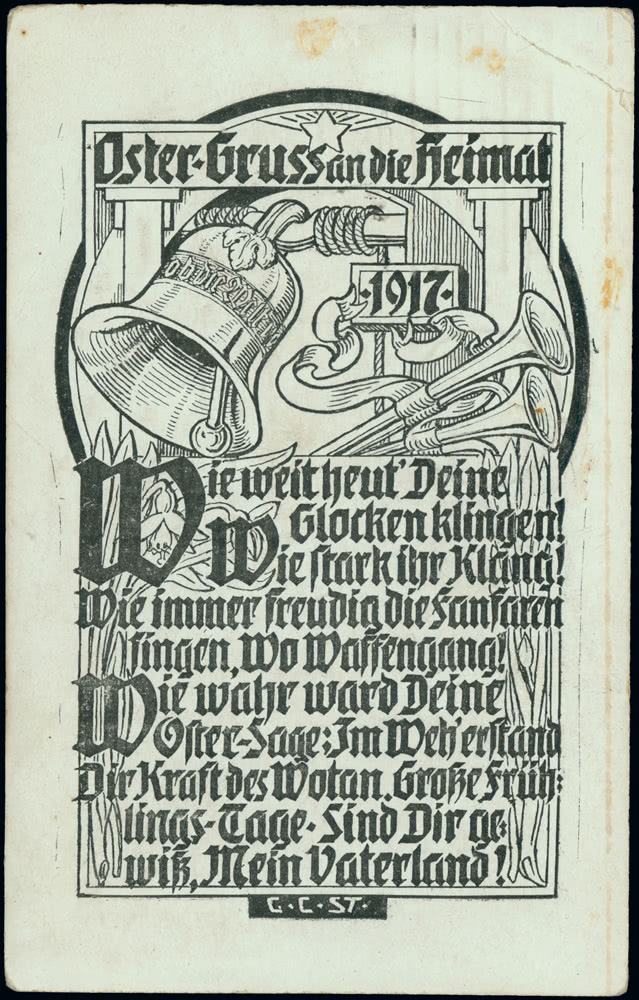 Oster-Gruss an die Heimat
·1917·
Wie weit heut' Deine
Glocken klingen!
Wie stark ihr Klang!
Wie immer freudig die Fanfaren
singen, Wo Waffengang!
Wie wahr ward Deine
Oster-Sage: Im Weh' erstand
Dir Kraft des Wotan. Große Früh:
lings-Tage· Sind Dir ge:
wiß, Mein Vaterland!
C·C·ST·